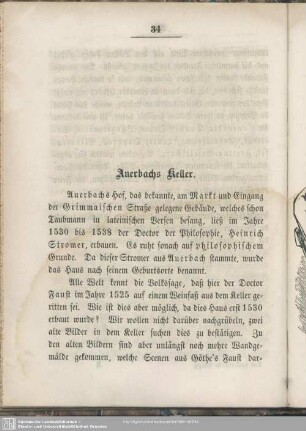 34
Auerbachs Keller.
Auerbachs Hof, das bekannte, am Markt und Eingang
der Grimmaischen Straße gelegene Gebäude, welches schon
Taubmann in lateinischen Versen besang, ließ im Jahre
1530 bis 1538 der Doctor der Philosophie, Heinrich
Stromer, erbauen. Es ruht sonach auf philosophischem
Grunde. Da dieser Stromer aus Auerbach stammte, wurde
das Haus nach seinem Geburtsorte benannt.
Alle Welt kennt die Volkssage, daß hier der Doctor
Faust im Jahre 1525 auf einem Weinfaß aus dem Keller ge-
ritten sei. Wie ist dies aber möglich, da dies Haus erst 1530
erbaut wurde? Wir wollen nicht darüber nachgrübeln, zwei
alte Bilder in dem Keller suchen dies zu bestätigen. Zu
den alten Bildern sind aber unlängst noch mehr Wandge-
mälde gekommen, welche Scenen aus Göthe's Faust dar-